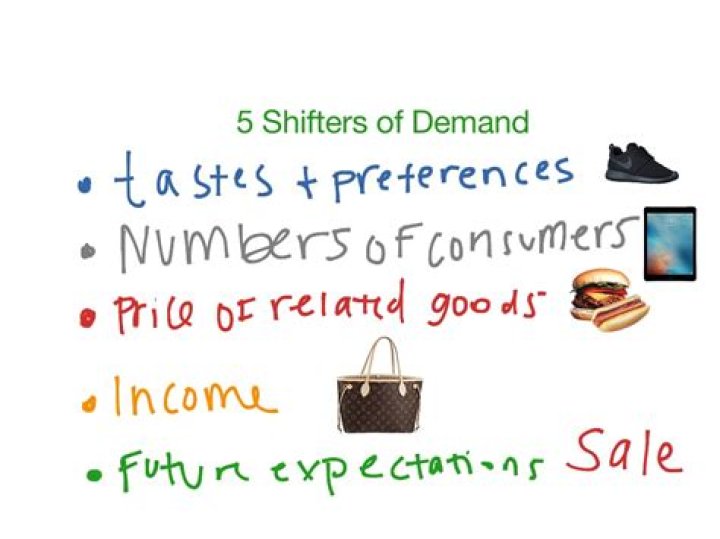 5 Shifters of Demand
• tastes + preferences
• Numbers of consumers
• Price of related goods
• Income
• Future expectations Sale